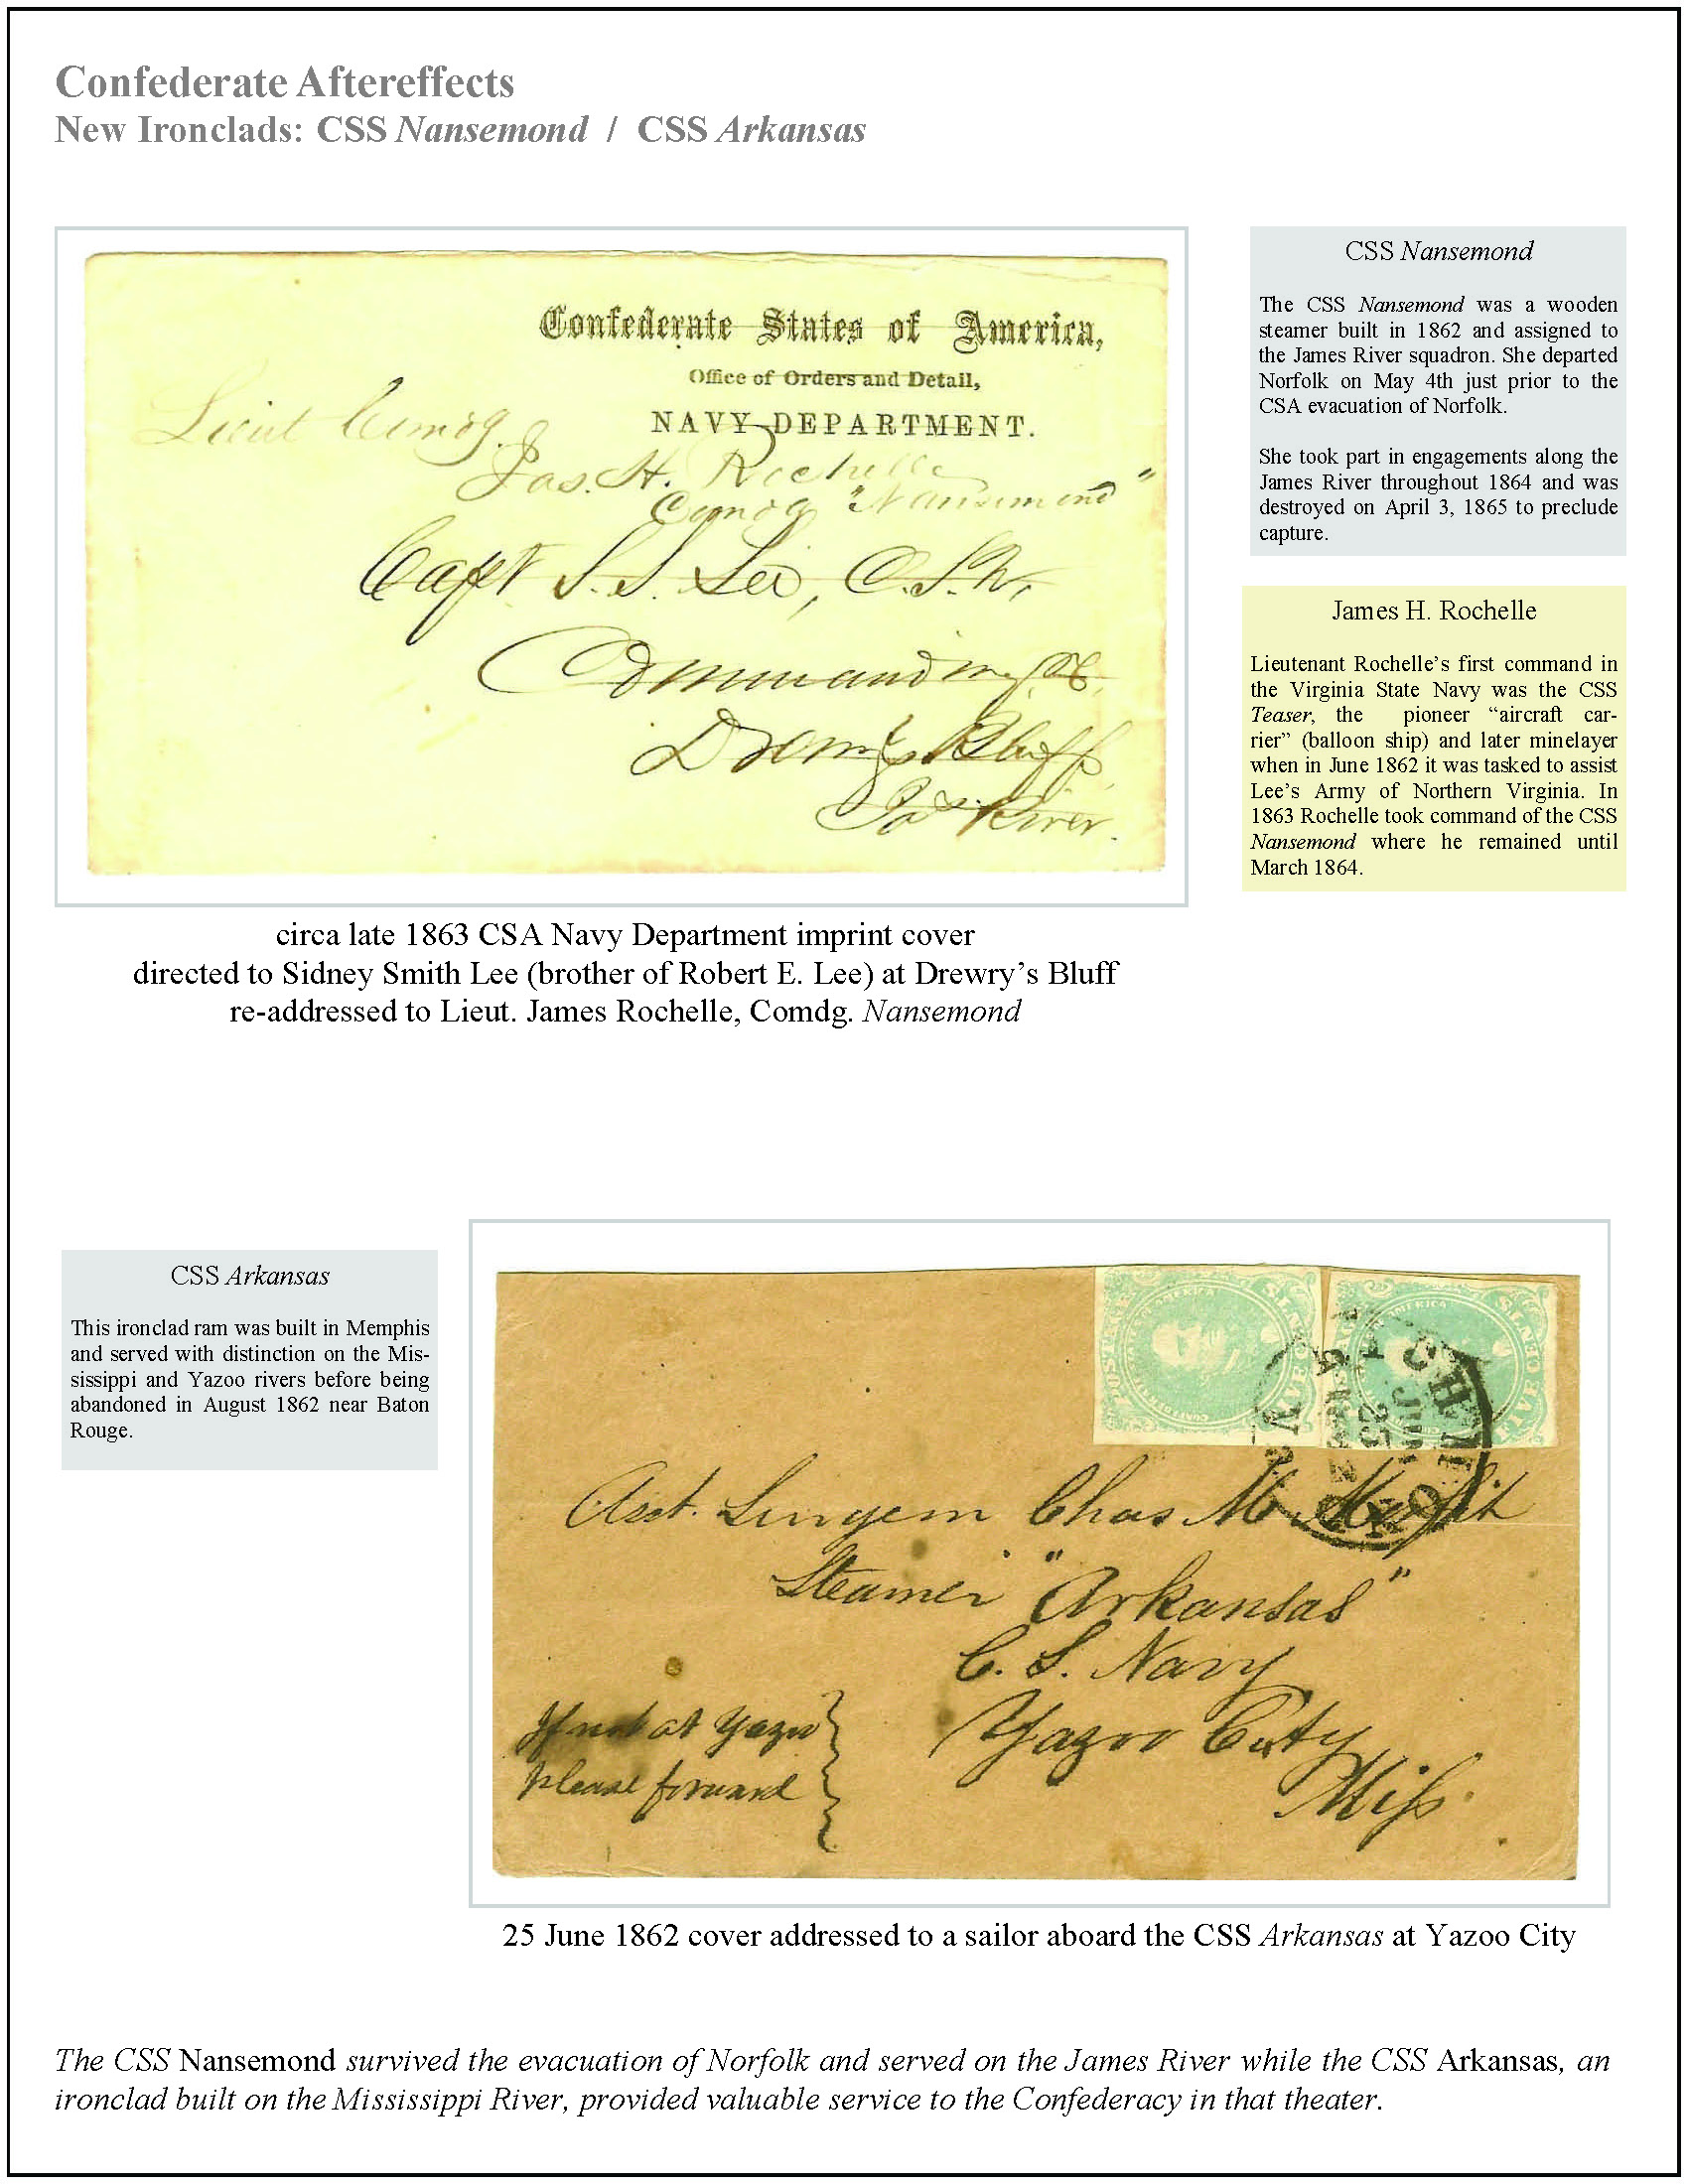 Confederate Aftereffects
New Ironclads: CSS Nansemond / CSS Arkansas
Confederate States of America,
Office of Orders and Detail,
NAVY DEPARTMENT.
Lieut Comdg.
Jas. H. Rochelle
Comdg "Nansemond"
Capt S. S. Lee, C.S.N.
Commanding &c
Drewry's Bluff
Jas River.
circa late 1863 CSA Navy Department imprint cover
directed to Sidney Smith Lee (brother of Robert E. Lee) at Drewry’s Bluff
re-addressed to Lieut. James Rochelle, Comdg. Nansemond
CSS Nansemond
The CSS Nansemond was a wooden
steamer built in 1862 and assigned to
the James River squadron. She departed
Norfolk on May 4th just prior to the
CSA evacuation of Norfolk.
She took part in engagements along the
James River throughout 1864 and was
destroyed on April 3, 1865 to preclude
capture.
James H. Rochelle
Lieutenant Rochelle’s first command in
the Virginia State Navy was the CSS
Teaser, the pioneer “aircraft car-
rier” (balloon ship) and later minelayer
when in June 1862 it was tasked to assist
Lee’s Army of Northern Virginia. In
1863 Rochelle took command of the CSS
Nansemond where he remained until
March 1864.
CSS Arkansas
This ironclad ram was built in Memphis
and served with distinction on the Mis-
sissippi and Yazoo rivers before being
abandoned in August 1862 near Baton
Rouge.
JUN
25
Asst. Surgeon Chas M
Steamer "Arkansas"
C. S. Navy
Yazoo City
Miss.
If not at Yazoo
please forward
25 June 1862 cover addressed to a sailor aboard the CSS Arkansas at Yazoo City
The CSS Nansemond survived the evacuation of Norfolk and served on the James River while the CSS Arkansas, an
ironclad built on the Mississippi River, provided valuable service to the Confederacy in that theater.